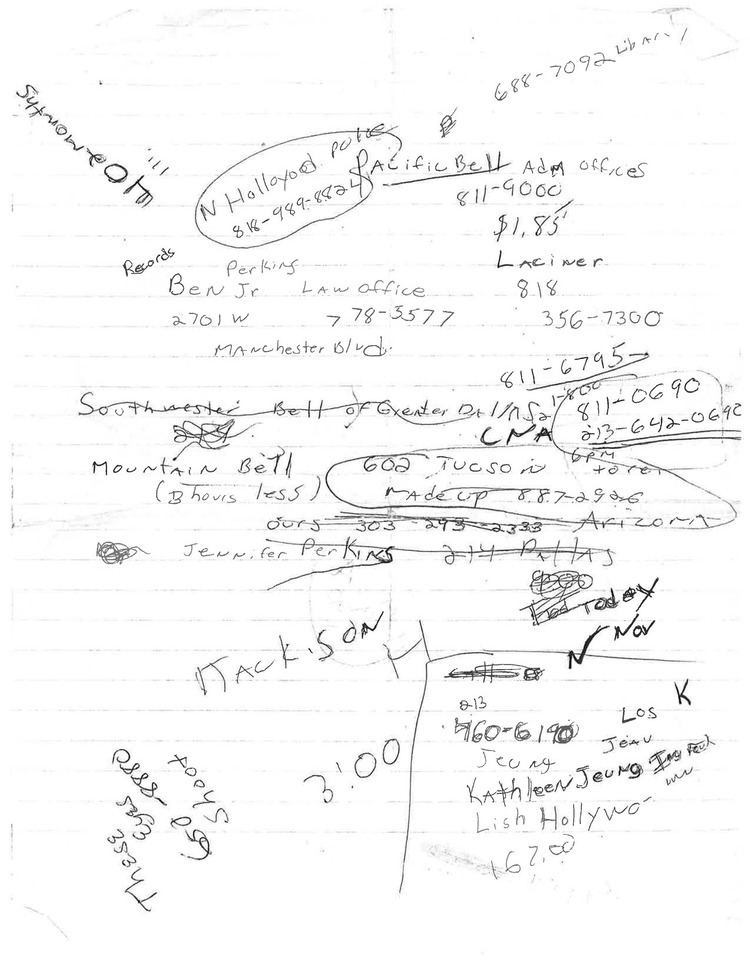 688-7092 Library
N Hollayood Police
818-989-8824
Pacific Bell Adm Offices
811-9000
$1.85
Records
Perkins
Laciner
Ben Jr Law Office
818
2701 W
778-3577
356-7300
Manchester Blvd.
811-6795
Southwester Bell of Greater Dallas
1-800
811-0690
CNA
213-642-0690
6pm
Mountain Bell
602 Tucson
(B hours less)
Made up 887-2926
ours 303-293-2333 Arizona
Jennifer Perkins 214 Dallas
Today
Nov
Mackison
K
213
760-6190
Los
Jeung
Jeau
Kathleen Jeung
Lish Hollywo
167.00
3:00
These Eyes
Shoot